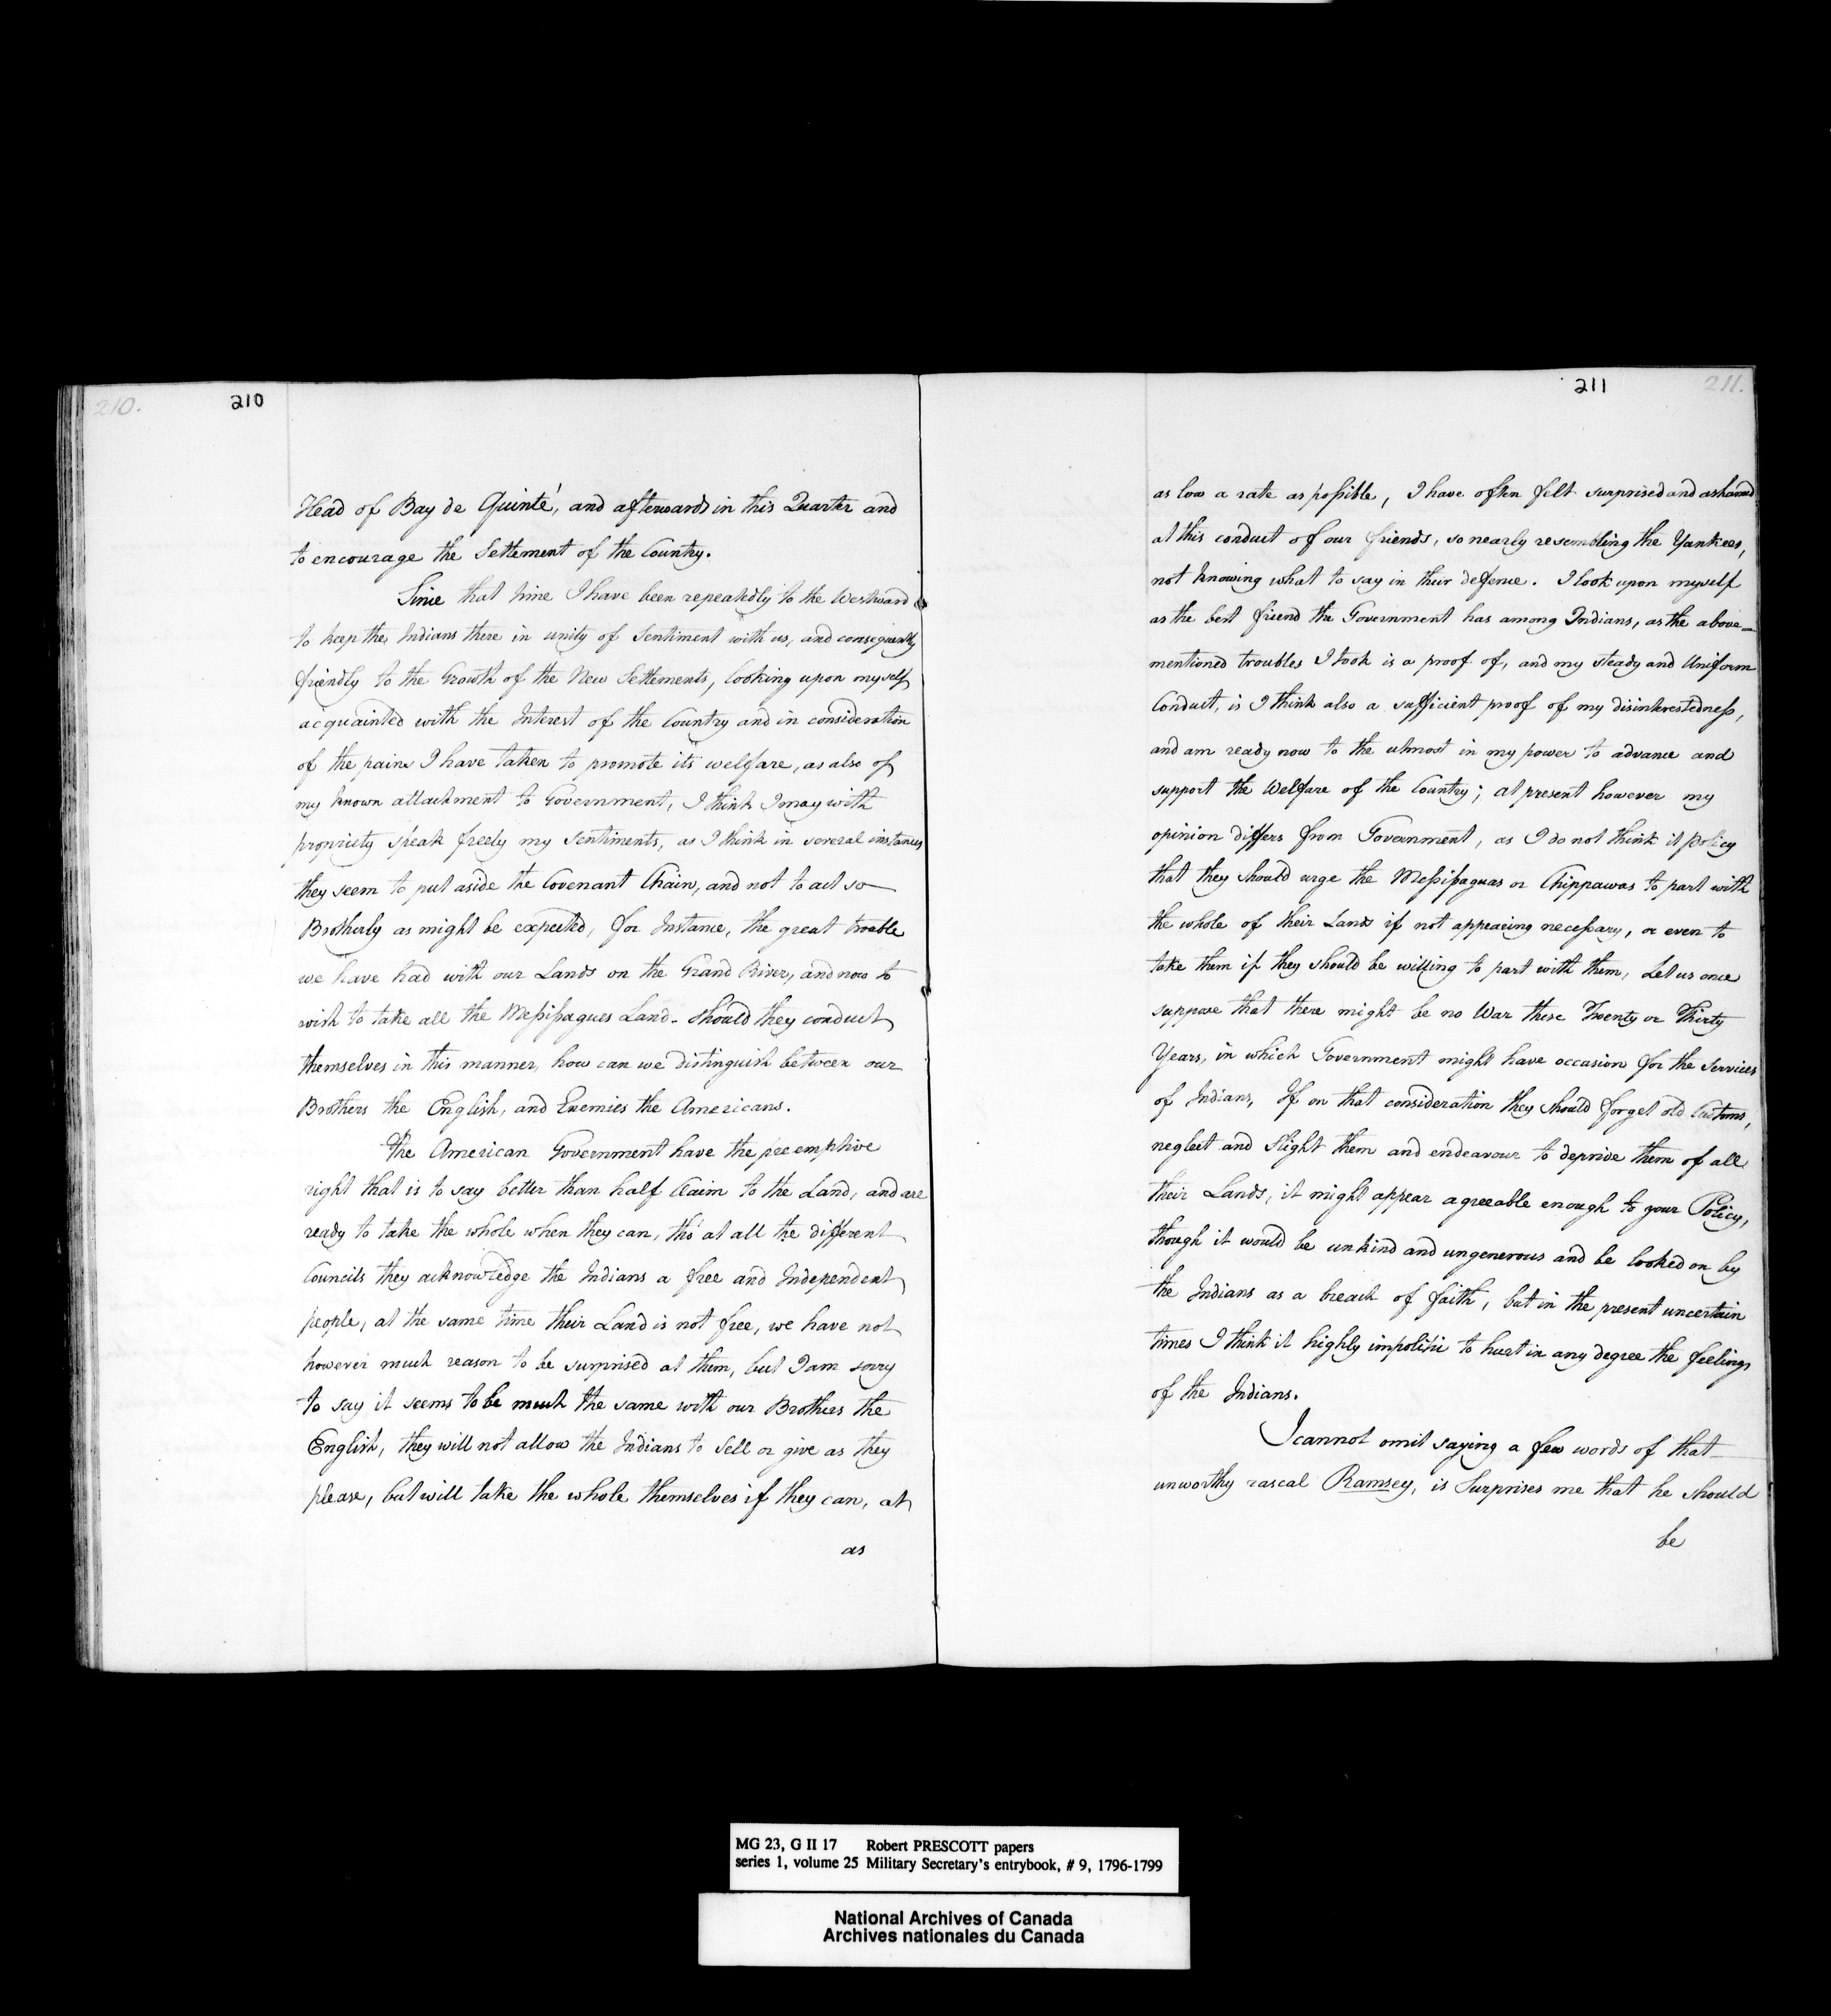 210.
210
Head of Bay de Quinté, and afterwards in this Quarter and
to encourage the Settlement of the Country.
Since that time I have been repeatedly to the Westward
to keep the Indians there in unity of Sentiment with us, and consequently
friendly to the Growth of the New Settlements, looking upon myself
acquainted with the Interest of the Country and in consideration
of the pains I have taken to promote its welfare, as also of
my known attachment to Government, I think I may with
propriety speak freely my Sentiments, as I think in several instances
they seem to put aside the Covenant Chain, and not to act so
Brotherly as might be expected, for Instance, the great trouble
we have had with our Lands on the Grand River, and now to
wish to take all the Messissagues Land - Should they conduct
themselves in this manner, how can we distinguish between our
Brothers the English, and Enemies the Americans.
The American Government have the preemptive
right that is to say better than half Claim to the Land, and are
ready to take the whole when they can, tho' at all the different
Councils they acknowledge the Indians a free and Independent
people, at the same time their Land is not free, we have not
however much reason to be surprised at them, but I am sorry
to say it seems to be much the same with our Brothers the
English, they will not allow the Indians to Sell or give as they
please, but will take the whole themselves if they can, at
as
211
211.
as low a rate as possible, I have often felt surprised and ashamed
at this conduct of our friends, so nearly resembling the Yankees,
not knowing what to say in their defence. I look upon myself
as the best friend the Government has among Indians, as the above-
mentioned troubles I took is a proof of, and my steady and Uniform
Conduct, is I think also a sufficient proof of my disinterestedness,
and am ready now to the utmost in my power to advance and
support the Welfare of the Country; at present however my
opinion differs from Government, as I do not think it Policy
that they should urge the Messissaguas or Chippawas to part with
the whole of their Lands if not appearing necessary, or even to
take them if they should be willing to part with them, Let us once
suppose that there might be no War these Twenty or Thirty
Years, in which Government might have occasion for the Services
of Indians, If on that consideration they should forget old Customs,
neglect and Slight them and endeavour to deprive them of all
their Lands, it might appear agreeable enough to your Policy,
though it would be unkind and ungenerous and be looked on by
the Indians as a breach of faith, but in the present uncertain
times I think it highly impolitic to hurt in any degree the feelings
of the Indians.
I cannot omit saying a few words of that
unworthy rascal Ramsey, is Surprises me that he should
be
MG 23, G II 17 Robert PRESCOTT papers
series 1, volume 25 Military Secretary's entrybook, # 9, 1796-1799
National Archives of Canada
Archives nationales du Canada